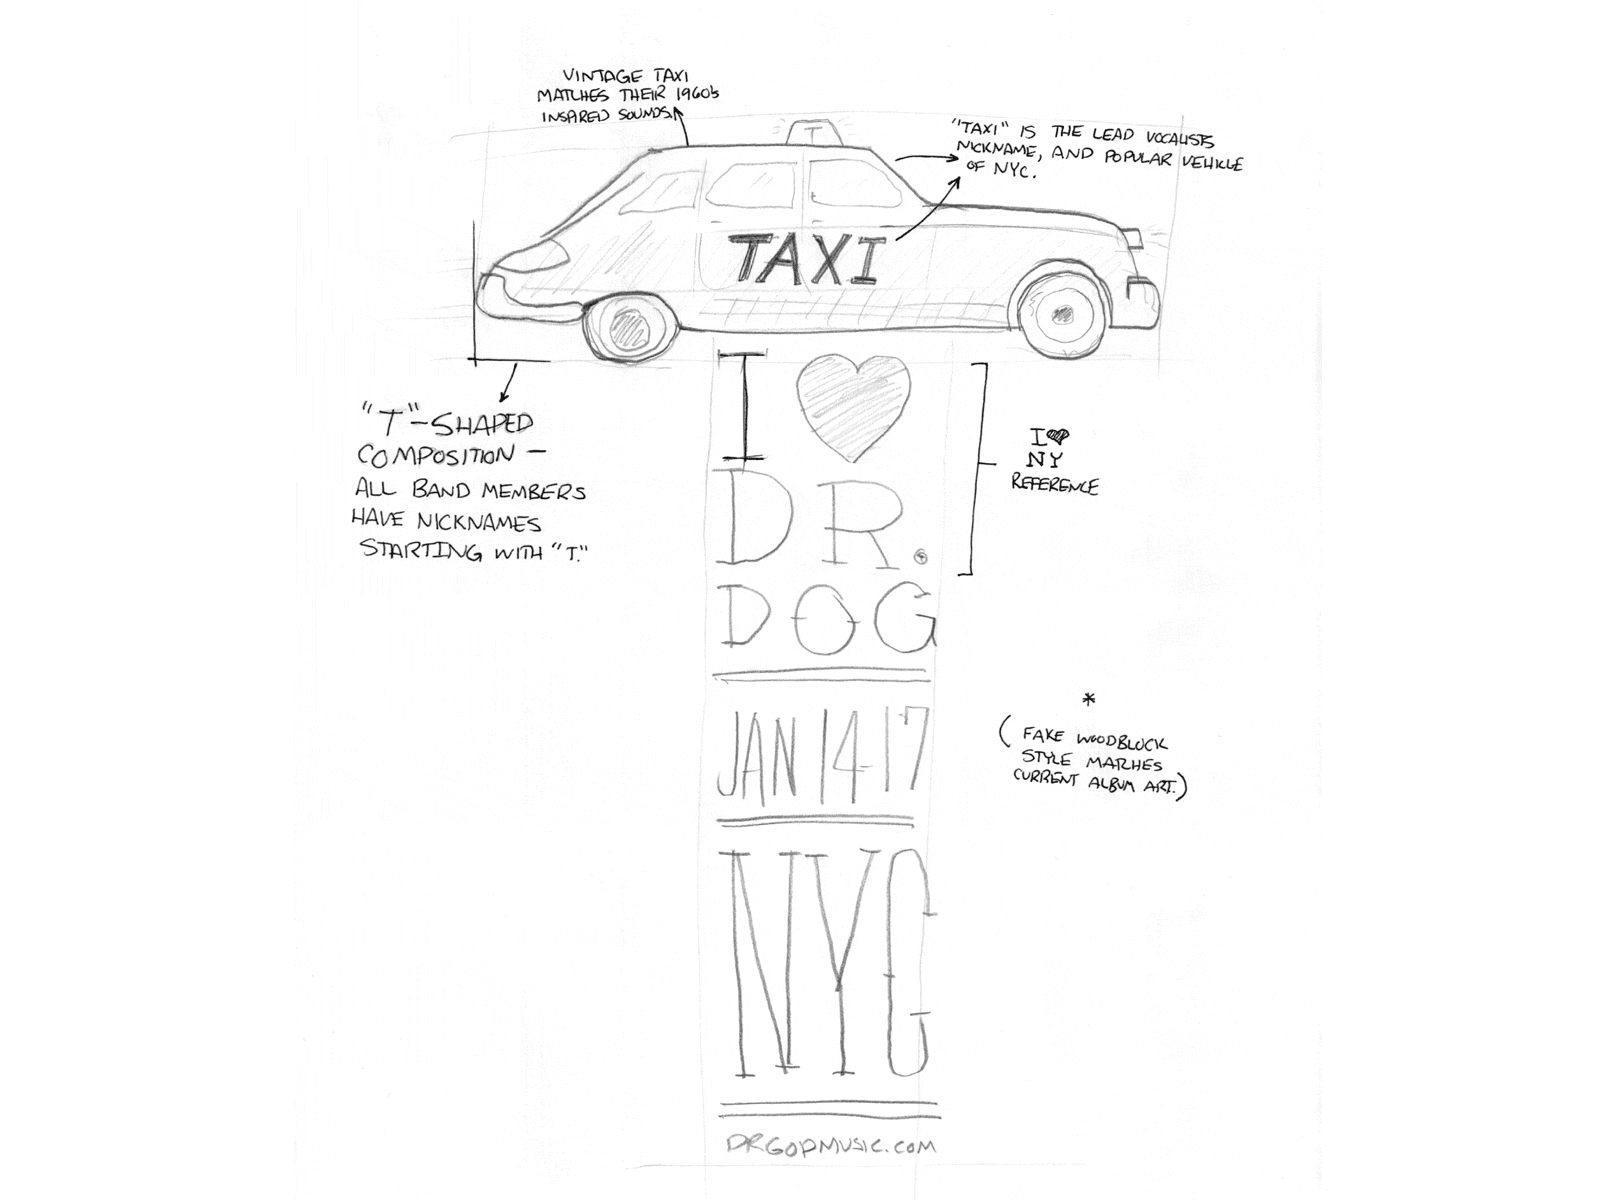 VINTAGE TAXI
MATCHES THEIR 1960'S
INSPIRED SOUNDS.
T
"TAXI" IS THE LEAD VOCALISTS
NICKNAME, AND POPULAR VEHICLE
OF NYC.
TAXI
"T"-SHAPED
COMPOSITION —
ALL BAND MEMBERS
HAVE NICKNAMES
STARTING WITH "T."
I ♥
DR.
DOG
I ♥
NY
REFERENCE
JAN 14-17
*
(FAKE WOODBLOCK
STYLE MATCHES
CURRENT ALBUM ART.)
NYC
DRGODMUSIC.COM